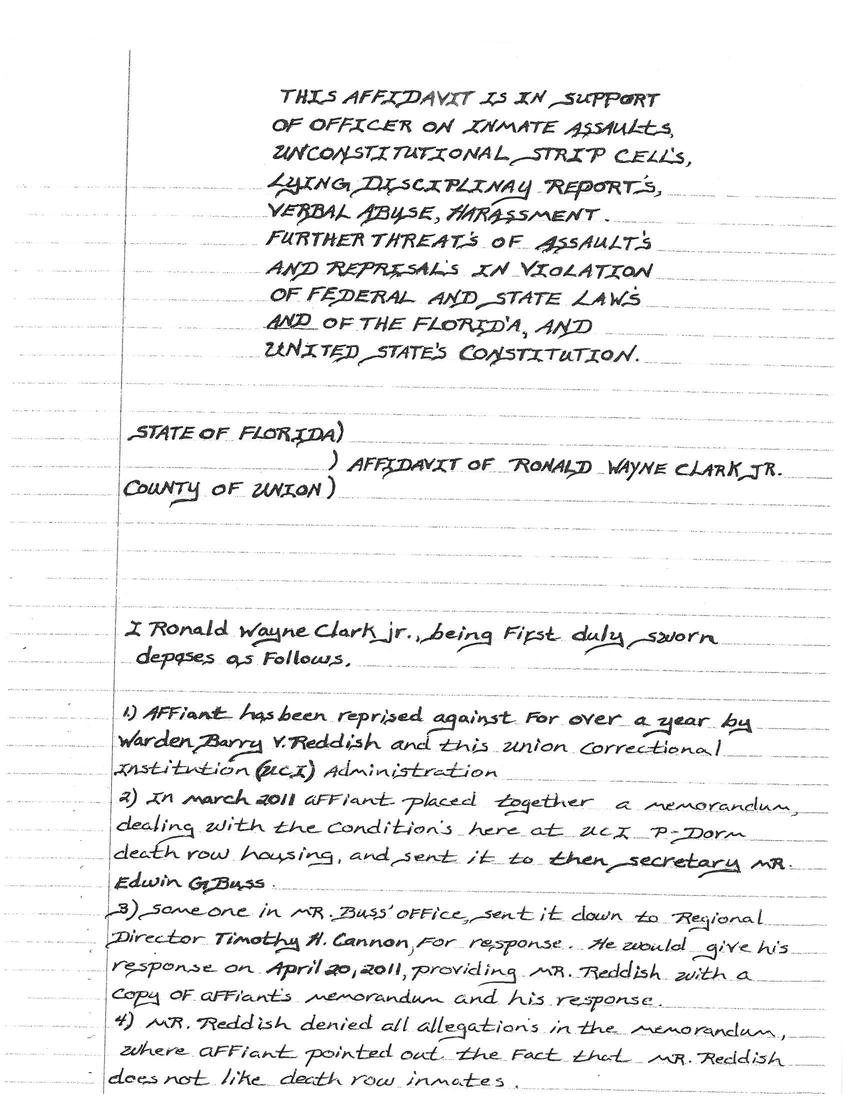 THIS AFFIDAVIT IS IN SUPPORT
OF OFFICER ON INMATE ASSAULTS,
UNCONSTITUTIONAL STRIP CELL'S,
LYING DISCIPLINAY REPORT'S,
VERBAL ABUSE, HARASSMENT.
FURTHER THREAT'S OF ASSAULT'S
AND REPRISAL'S IN VIOLATION
OF FEDERAL AND STATE LAW'S
AND OF THE FLORID'A, AND
UNITED STATE'S CONSTITUTION.
STATE OF FLORIDA)
) AFFIDAVIT OF RONALD WAYNE CLARK JR.
COUNTY OF UNION)
I Ronald Wayne Clark jr., being First duly sworn
deposes as Follows.
1.) AFFiant has been reprised against For over a year by
Warden Barry V. Reddish and this union correctional
Institution (UCI) Administration
2) In march 2011 aFFiant placed together a memorandum,
dealing with the condition's here at UCI P-Dorm
death row housing, and sent it to then secretary MR.
Edwin G. Buss.
3) Someone in MR. Buss' office, sent it down to Regional
Director Timothy H. Cannon, For response. He would give his
response on April 20, 2011, providing MR. Reddish with a
Copy OF aFFiant's memorandum and his response.
4) MR. Reddish denied all allegation's in the memorandum,
where aFFiant pointed out the Fact that MR. Reddish
does not like death row inmates.